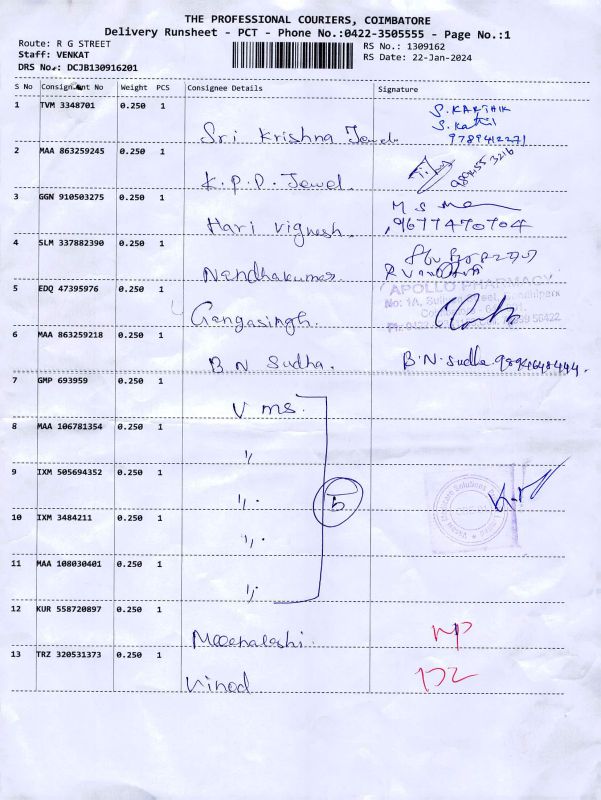 THE PROFESSIONAL COURIERS, COIMBATORE
Delivery Runsheet - PCT - Phone No.:0422-3505555 - Page No.:1
Route: R G STREET
RS No.: 1309162
Staff: VENKAT
RS Date: 22-Jan-2024
DRS No.: DCJB130916201
S No Consignment No Weight PCS Consignee Details Signature
1 TVM 3348701 0.250 1 Sri Krishna Jewel S. KARTHIK
9789412271
2 MAA 863259245 0.250 1 K.P.D. Jewel.
3 GGN 910503275 0.250 1 Hari Vignesh. M S
9677470704
4 SLM 337882390 0.250 1 Nandhakumar
5 EDQ 47395976 0.250 1 Gengasingh.
APOLLO PHARMACY
No: 1A,
6 MAA 863259218 0.250 1 B N Sudha. B.N. Sudha. 9894648444.
7 GMP 693959 0.250 1 V ms.
8 MAA 106781354 0.250 1 〃
9 IXM 505694352 0.250 1 〃 5
10 IXM 3484211 0.250 1 〃
11 MAA 108030401 0.250 1 〃
12 KUR 558720897 0.250 1 Meenakshi. NP
13 TRZ 320531373 0.250 1 Vinod